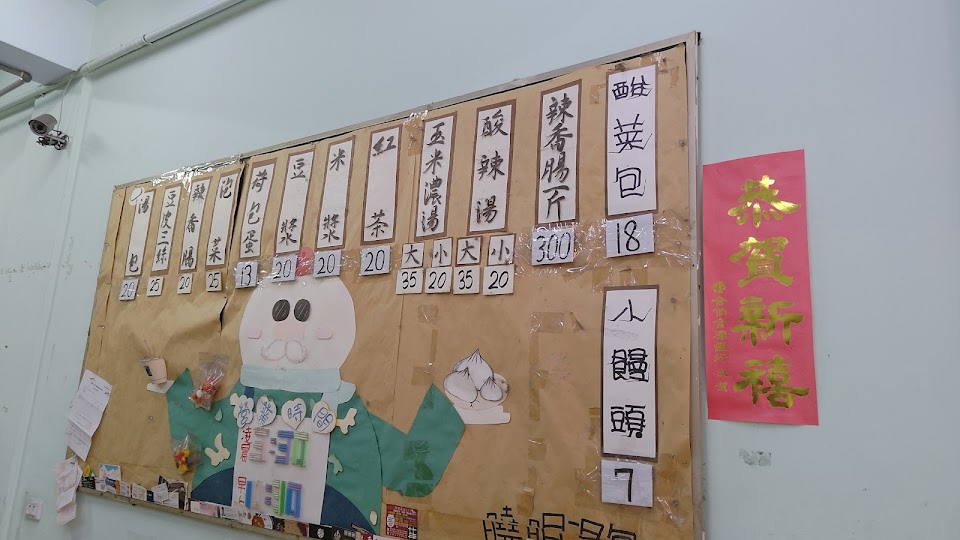 酸菜包
18
小饅頭
7
辣香腸一斤
300
酸辣湯
大 小
35 20
玉米濃湯
大 小
35 20
紅茶
20
米漿
20
豆漿
20
荷包蛋
13
泡菜
25
辣香腸
20
豆皮三絲
25
湯包
20
營業時間
恭賀新禧